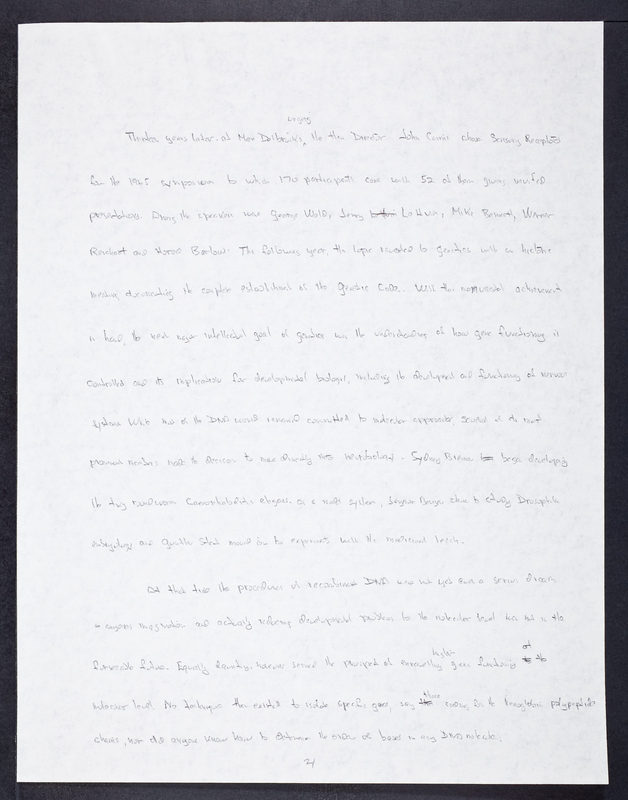 urging
Thirteen years later at Max Delbrück's, the then Director John Cairns chose Sensory Receptors
for the 1965 symposium to which 170 participants came with 52 of them giving invited
presentations. Among the speakers were George Wald, Jerry Lettvin, Mike Bennett, Werner
Reichardt and Horace Barlow. The following year, the topic reverted to genetics with an historic
meeting documenting the complete establishment of the genetic code. With this monumental achievement
in hand, the next major intellectual goal of genetics was the understanding of how gene functioning is
controlled and its implications for developmental biology, including the development and functioning of nervous
systems. While most of the DNA world remained committed to molecular approaches, several of its most
prominent members made the decision to move directly into neurobiology. Sydney Brenner began developing
the tiny roundworm Caenorhabditis elegans as a model system, Seymour Benzer chose to study Drosophila
and Gunther Stent moved on to experiments with the medicinal leech.
At that time the procedures of recombinant DNA were not yet even a serious dream
in anyone's imagination and actually reducing developmental problems to the molecular level was not in the
foreseeable future. Equally daunting, however seemed the prospect of unravelling higher gene functioning at the
molecular level. No techniques then existed to isolate specific genes, say those coding for the hemoglobin polypeptide
chains, nor did anyone know how to determine the order of bases in any DNA molecule.
21